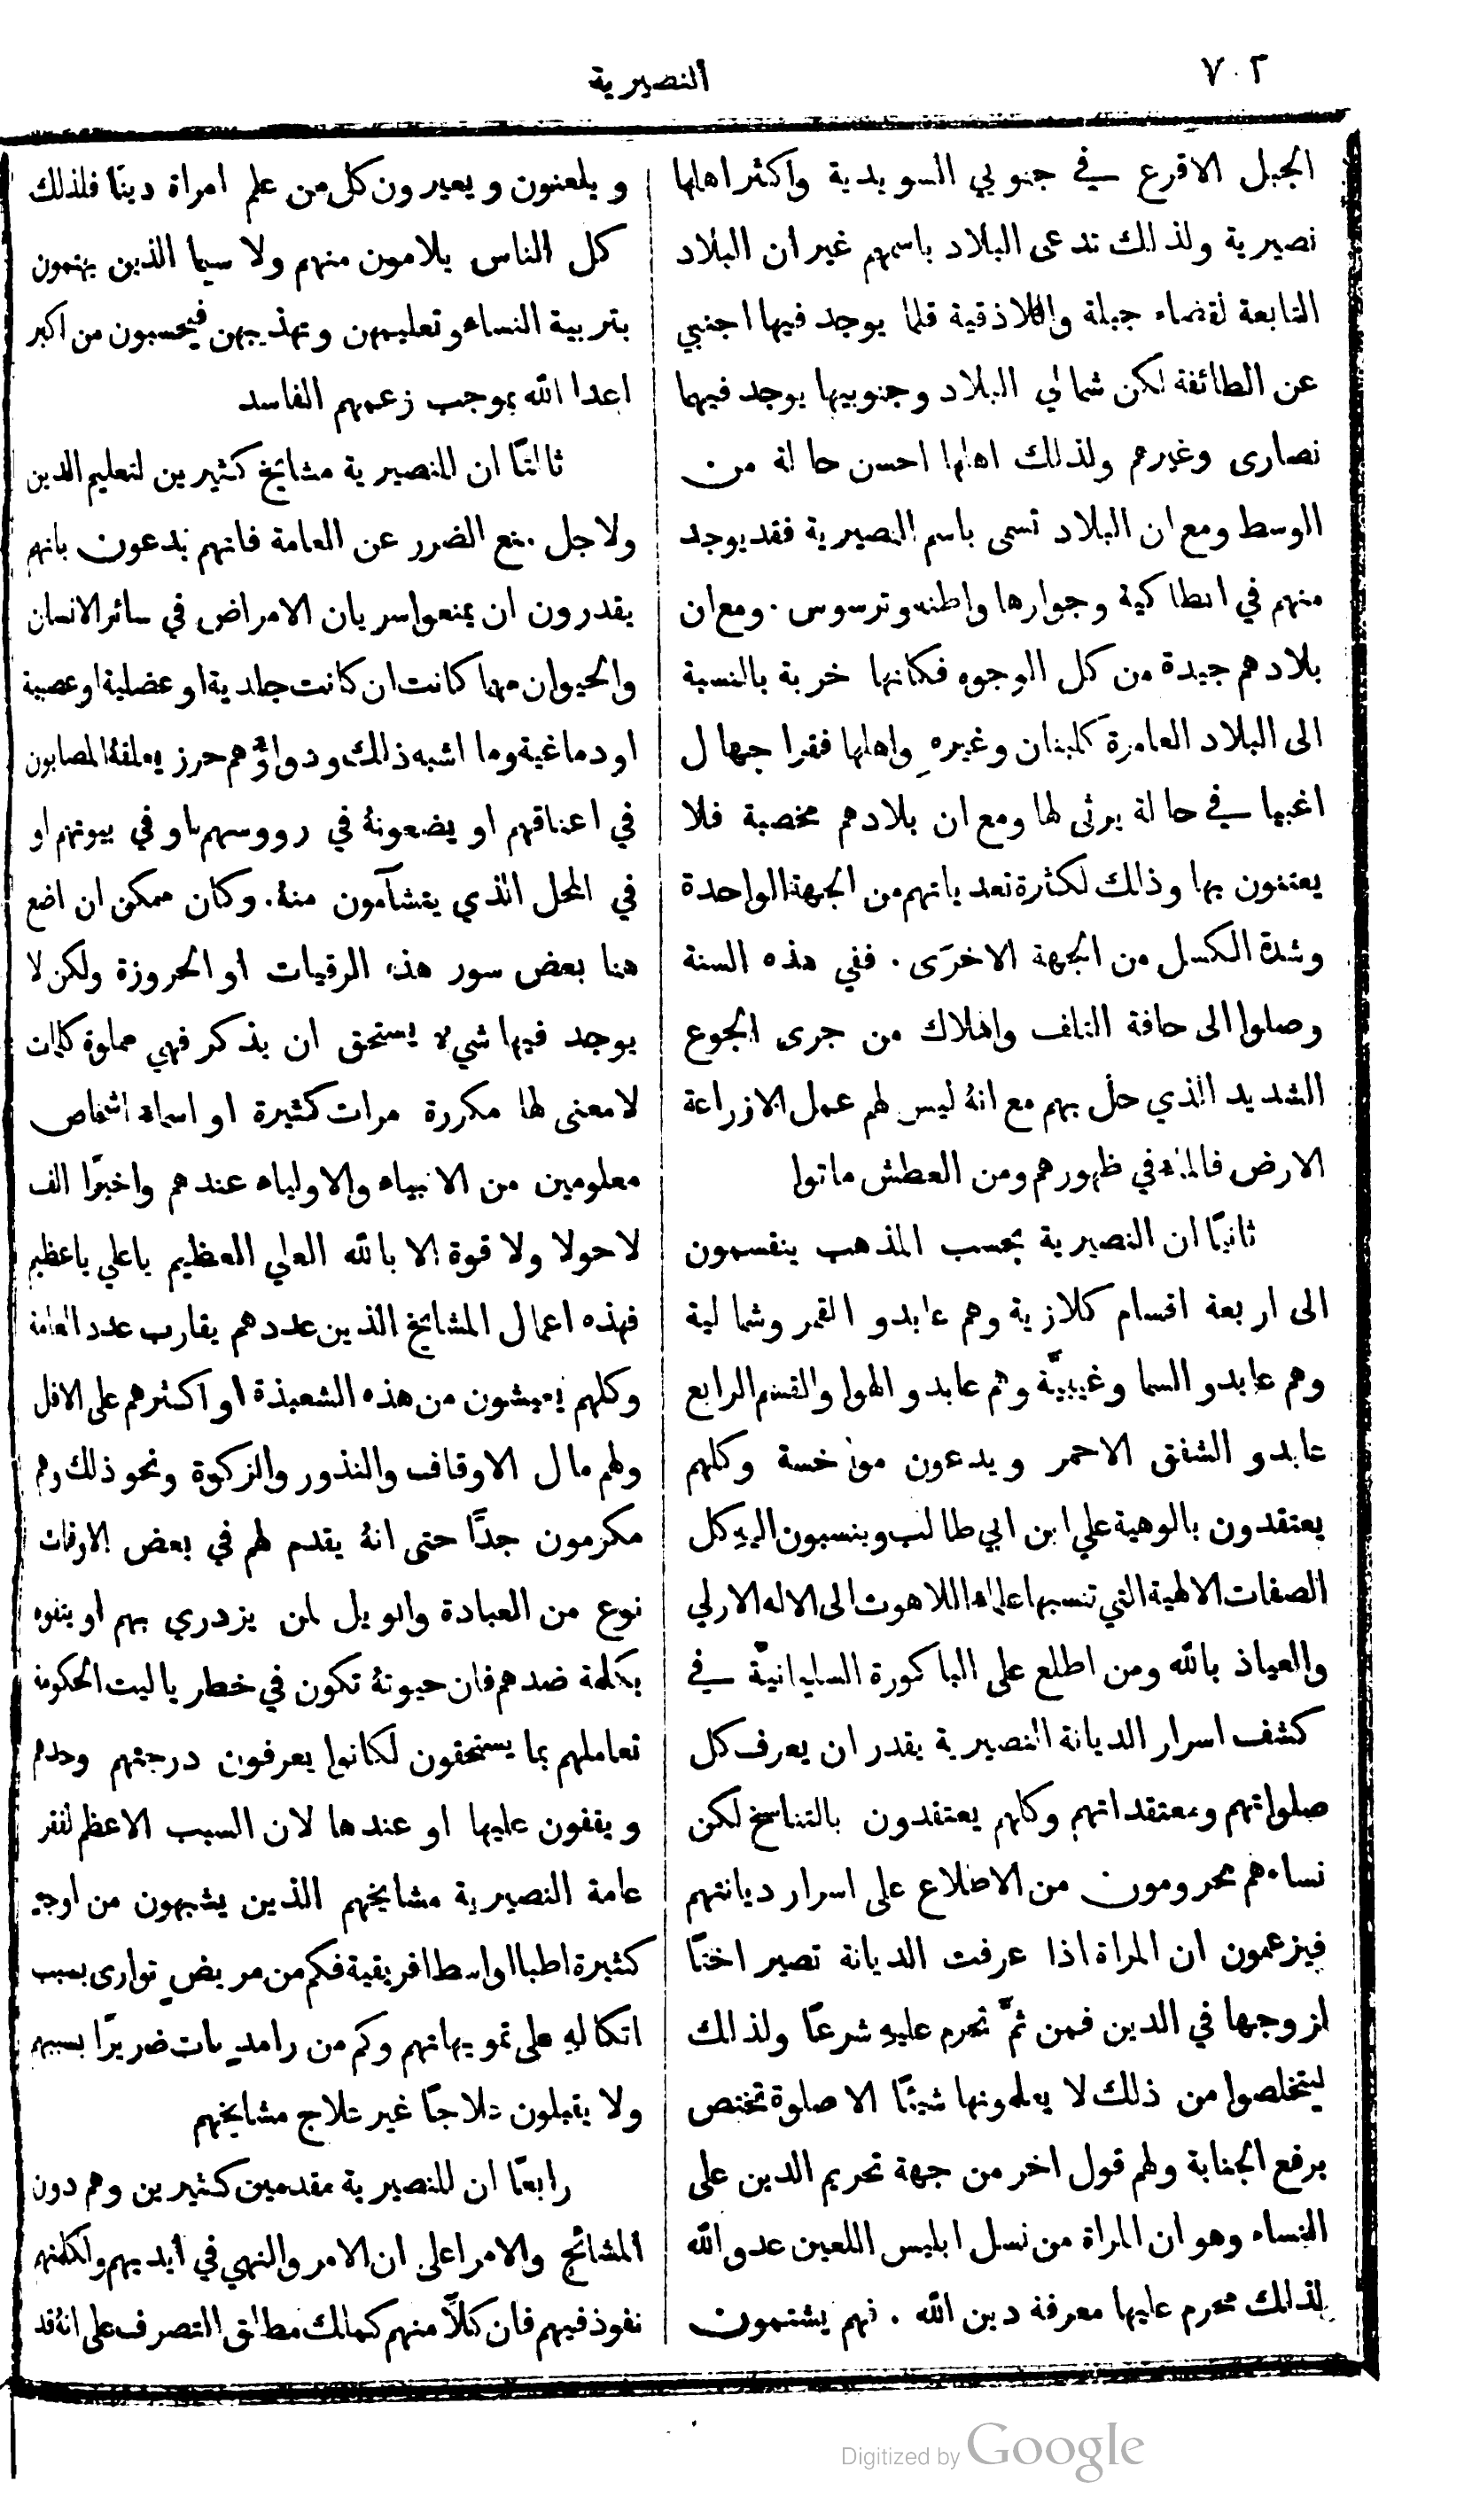 ٧٠٢
النصيرية
الجبل الاقرع في جنوبي السويدية واكثر اهلها
نصيرية ولذلك تدعى البلاد باسمهم غير ان البلاد
التابعة لقضاء جبلة واللاذقية قلما يوجد فيها اجنبي
عن الطائفة لكن شمالي البلاد وجنوبيها يوجد فيهما
نصارى وغيرهم ولذلك اهلها احسن حالة من
الوسط ومع ان البلاد تسمى باسم النصيرية فقد يوجد
منهم في انطاكية وجوارها واطنه وترسوس . ومع ان
بلادهم جيدة من كل الوجوه فكانها خربة بالنسبة
الى البلاد العامرة كلبنان وغيرهِ واهلها فقرا جهال
اغبيا في حالة يرثى لها ومع ان بلادهم مخصبة فلا
يعتنون بها وذلك لكثرة تعدياتهم من الجهة الواحدة
وشدة الكسل من الجهة الاخرَى . ففي هذه السنة
وصلوا الى حافة التلف والهلاك من جرى الجوع
الشديد الذي حل بهم مع انهُ ليس لهم عمل الا زراعة
الارض فالماء في ظهورهم ومن العطش ماتوا
ثانيًا ان النصيرية بحسب المذهب ينقسمون
الى اربعة اقسام كلازية وهم عابدو القمر وشمالية
وهم عابدو السما وغيبيَّة وهم عابدو الهوا والقسم الرابع
عابدو الشفق الاحمر ويدعون مواخسة وكلهم
يعتقدون بالوهية علي ابن ابي طالب وينسبون اليهِ كل
الصفات الالهية التي تنسبها علماء اللاهوت الى الاله الازلي
والعياذ بالله ومن اطلع على الباكورة السليمانيَّة في
كشف اسرار الديانة النصيرية يقدر ان يعرف كل
صلواتهم ومعتقداتهم وكلهم يعتقدون بالتناسخ لكن
نساءهم محرومون من الاطلاع على اسرار ديانتهم
فيزعمون ان المراة اذا عرفت الديانة تصير اختًا
لزوجها في الدين فمن ثمَّ تحرم عليهِ شرعًا ولذلك
ليتخلصوا من ذلك لا يعلمونها شيئًا الا صلوة تختص
برفع الجنابة ولهم قول اخر من جهة تحريم الدين على
النساء وهو ان المراة من نسل ابليس اللعين عدو الله
لذلك محرم عليها معرفة دين الله . فهم يشتمون
ويلعنون ويعيرون كل من علم امراة دينًا فلذلك
كل الناس يلامون منهم ولا سيما الذين يهتمون
بتربية النساء وتعليمهن وتهذيبهن فيحسبون من اكبر
اعدا الله بموجب زعمهم الفاسد
ثالثًا ان للنصيرية مشايخ كثيرين لتعليم الدين
ولاجل منع الضرر عن العامة فانهم يدعون بانهم
يقدرون ان يمنعوا سريان الامراض في سائر الانسان
والحيوان مهما كانت ان كانت جلدية او عضلية او عصبية
او دماغية وما اشبه ذلك ودواؤهم حرز يعلقهُ المصابون
في اعناقهم او يضعونهُ في رووسهم او في بيوتهم او
في المحل الذي يتشآمون منهُ . وكان ممكن ان اضع
هنا بعض سور هذه الرقيات او الحروزة ولكن لا
يوجد فيها شيء يستحق ان يذكر فهي مملوة كلمات
لا معنى لها مكررة مرات كثيرة او اسماء اشخاص
معلومين من الانبياء والاولياء عندهم واخيرًا الف
لا حولا ولا قوة الا بالله العلي العظيم ياعلي ياعظيم
فهذه اعمال المشايخ الذين عددهم يقارب عدد العامة
وكلهم يعيشون من هذه الشعبذة او اكثرهم على الاقل
ولهم مال الاوقاف والنذور والزكوة ونحو ذلك وهم
مكرمون جدًّا حتى انهُ يقدم لهم في بعض الاوقات
نوع من العبادة والويل لمن يزدري بهم او يتفوه
بكلمة ضدهم فان حيوتهُ تكون في خطر ياليت الحكومة
تعاملهم بما يستحقون لكانوا يعرفون درجتهم وحدهم
ويقفون عليها او عندها لان السبب الاعظم لفقر
عامة النصيرية مشايخهم الذين يشبهون من اوجه
كثيرة اطبا اواسط افريقية فكم من مريضٍ توارى بسبب
اتكالهِ على تمويهاتهم وكم من رامدٍ بات ضريرًا بسببهم
ولا يقبلون علاجًا غير علاج مشايخهم
رابعًا ان للنصيرية مقدمين كثيرين وهم دون
المشائخ والامرا على ان الامر والنهي في ايديهم ولكلمتهم
نفوذ فيهم فان كلًّا منهم كمالك مطلق التصرف على انهُ قد
Digitized by Google